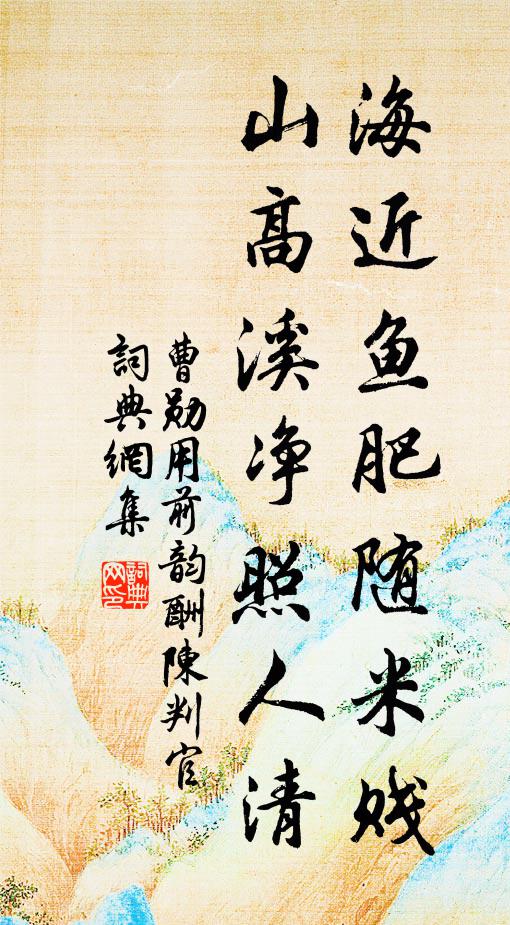 海近鱼肥随米贱
山高溪净照人清
曹勋用前韵酬陳判官
詞典網集
詞典
网印